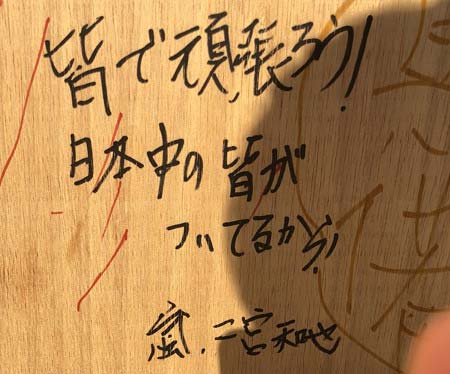 皆で頑張ろう!
日本中の皆が
ついてるから!
嵐.二宮和也